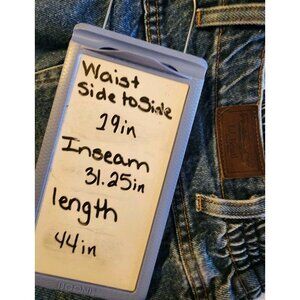 Waist
Side to Side
19in
Inseam
31.25in
length
44in